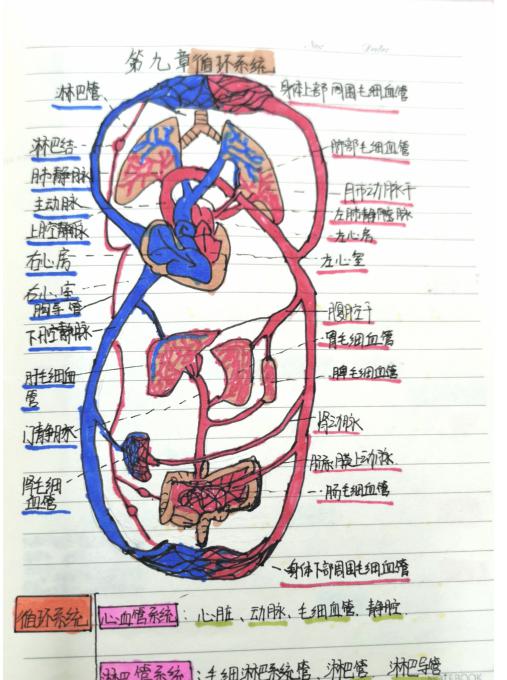 第九章 循环系统
淋巴管
淋巴结
肺静脉
主动脉
上腔静脉
右心房
右心室
胸导管
下腔静脉
肝毛细血
管
门静脉
肾毛细
血管
身体上部周围毛细血管
肺部毛细血管
肺动脉干
左肺静脉
左心房
左心室
腹腔干
胃毛细血管
脾毛细血管
肾动脉
肠系膜上动脉
肠毛细血管
身体下部周围毛细血管
循环系统
心血管系统：心脏、动脉、毛细血管、静腔.
淋巴管系统：毛细淋巴系统管、淋巴管 淋巴导管
NOTEBOOK